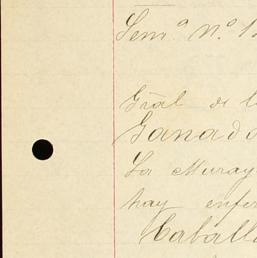 Sem.ª N.º 1
Gral de l
Ganado
La Muray
hay enfer
Caball